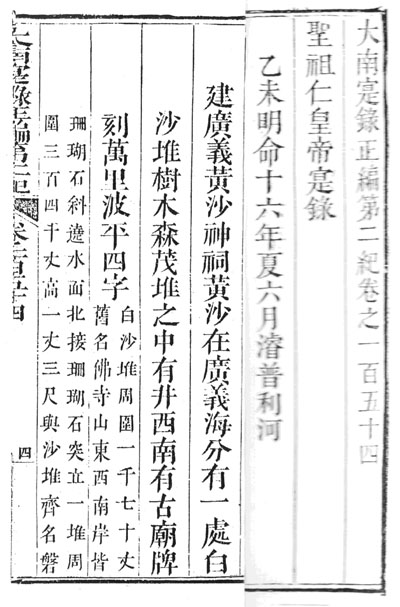 大南寔錄正編第二紀卷之一百五十四
聖祖仁皇帝寔錄
乙未明命十六年夏六月濬普利河
建廣義黃沙神祠黃沙在廣義海分有一處白
沙堆樹木森茂堆之中有井西南有古廟牌
刻萬里波平四字
白沙堆周圍一千七十丈
舊名佛寺山東西南岸皆
珊瑚石斜遶水面北接珊瑚石突立一堆周
圍三百四十丈高一丈三尺與沙堆齊名磐
大南寔錄正編第二紀
卷一百五十四
四